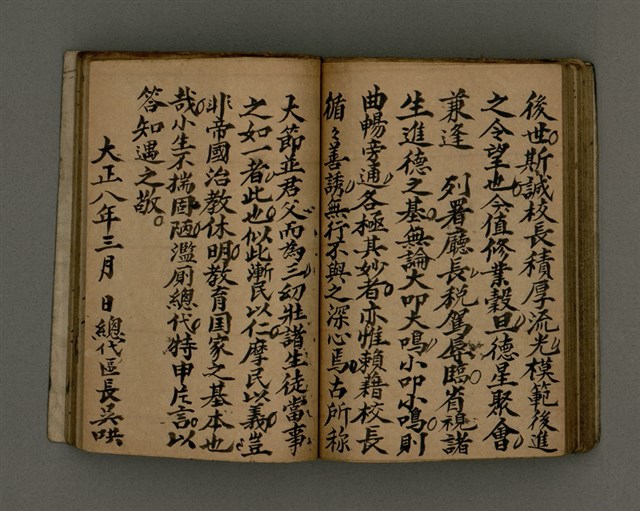 後世斯誠校長積厚流光模範後進
之令望也今值修業穀旦德星聚會
兼逢　列署廳長税駕辱臨省視諸
生進德之基無論大叩大鳴小叩小鳴則
曲暢旁通各極其妙者亦惟賴藉校長
循々善誘無行不與之深心焉古所称
大節並君父而為三幼壯諸生徒當事
之如一者此也似此漸民以仁摩民以義豈
非帝國治教休明教育国家之基本也
哉小生不揣固陋濫廁總代特申片言以
答知遇之敬。
大正八年三月　日總代區長吳哄